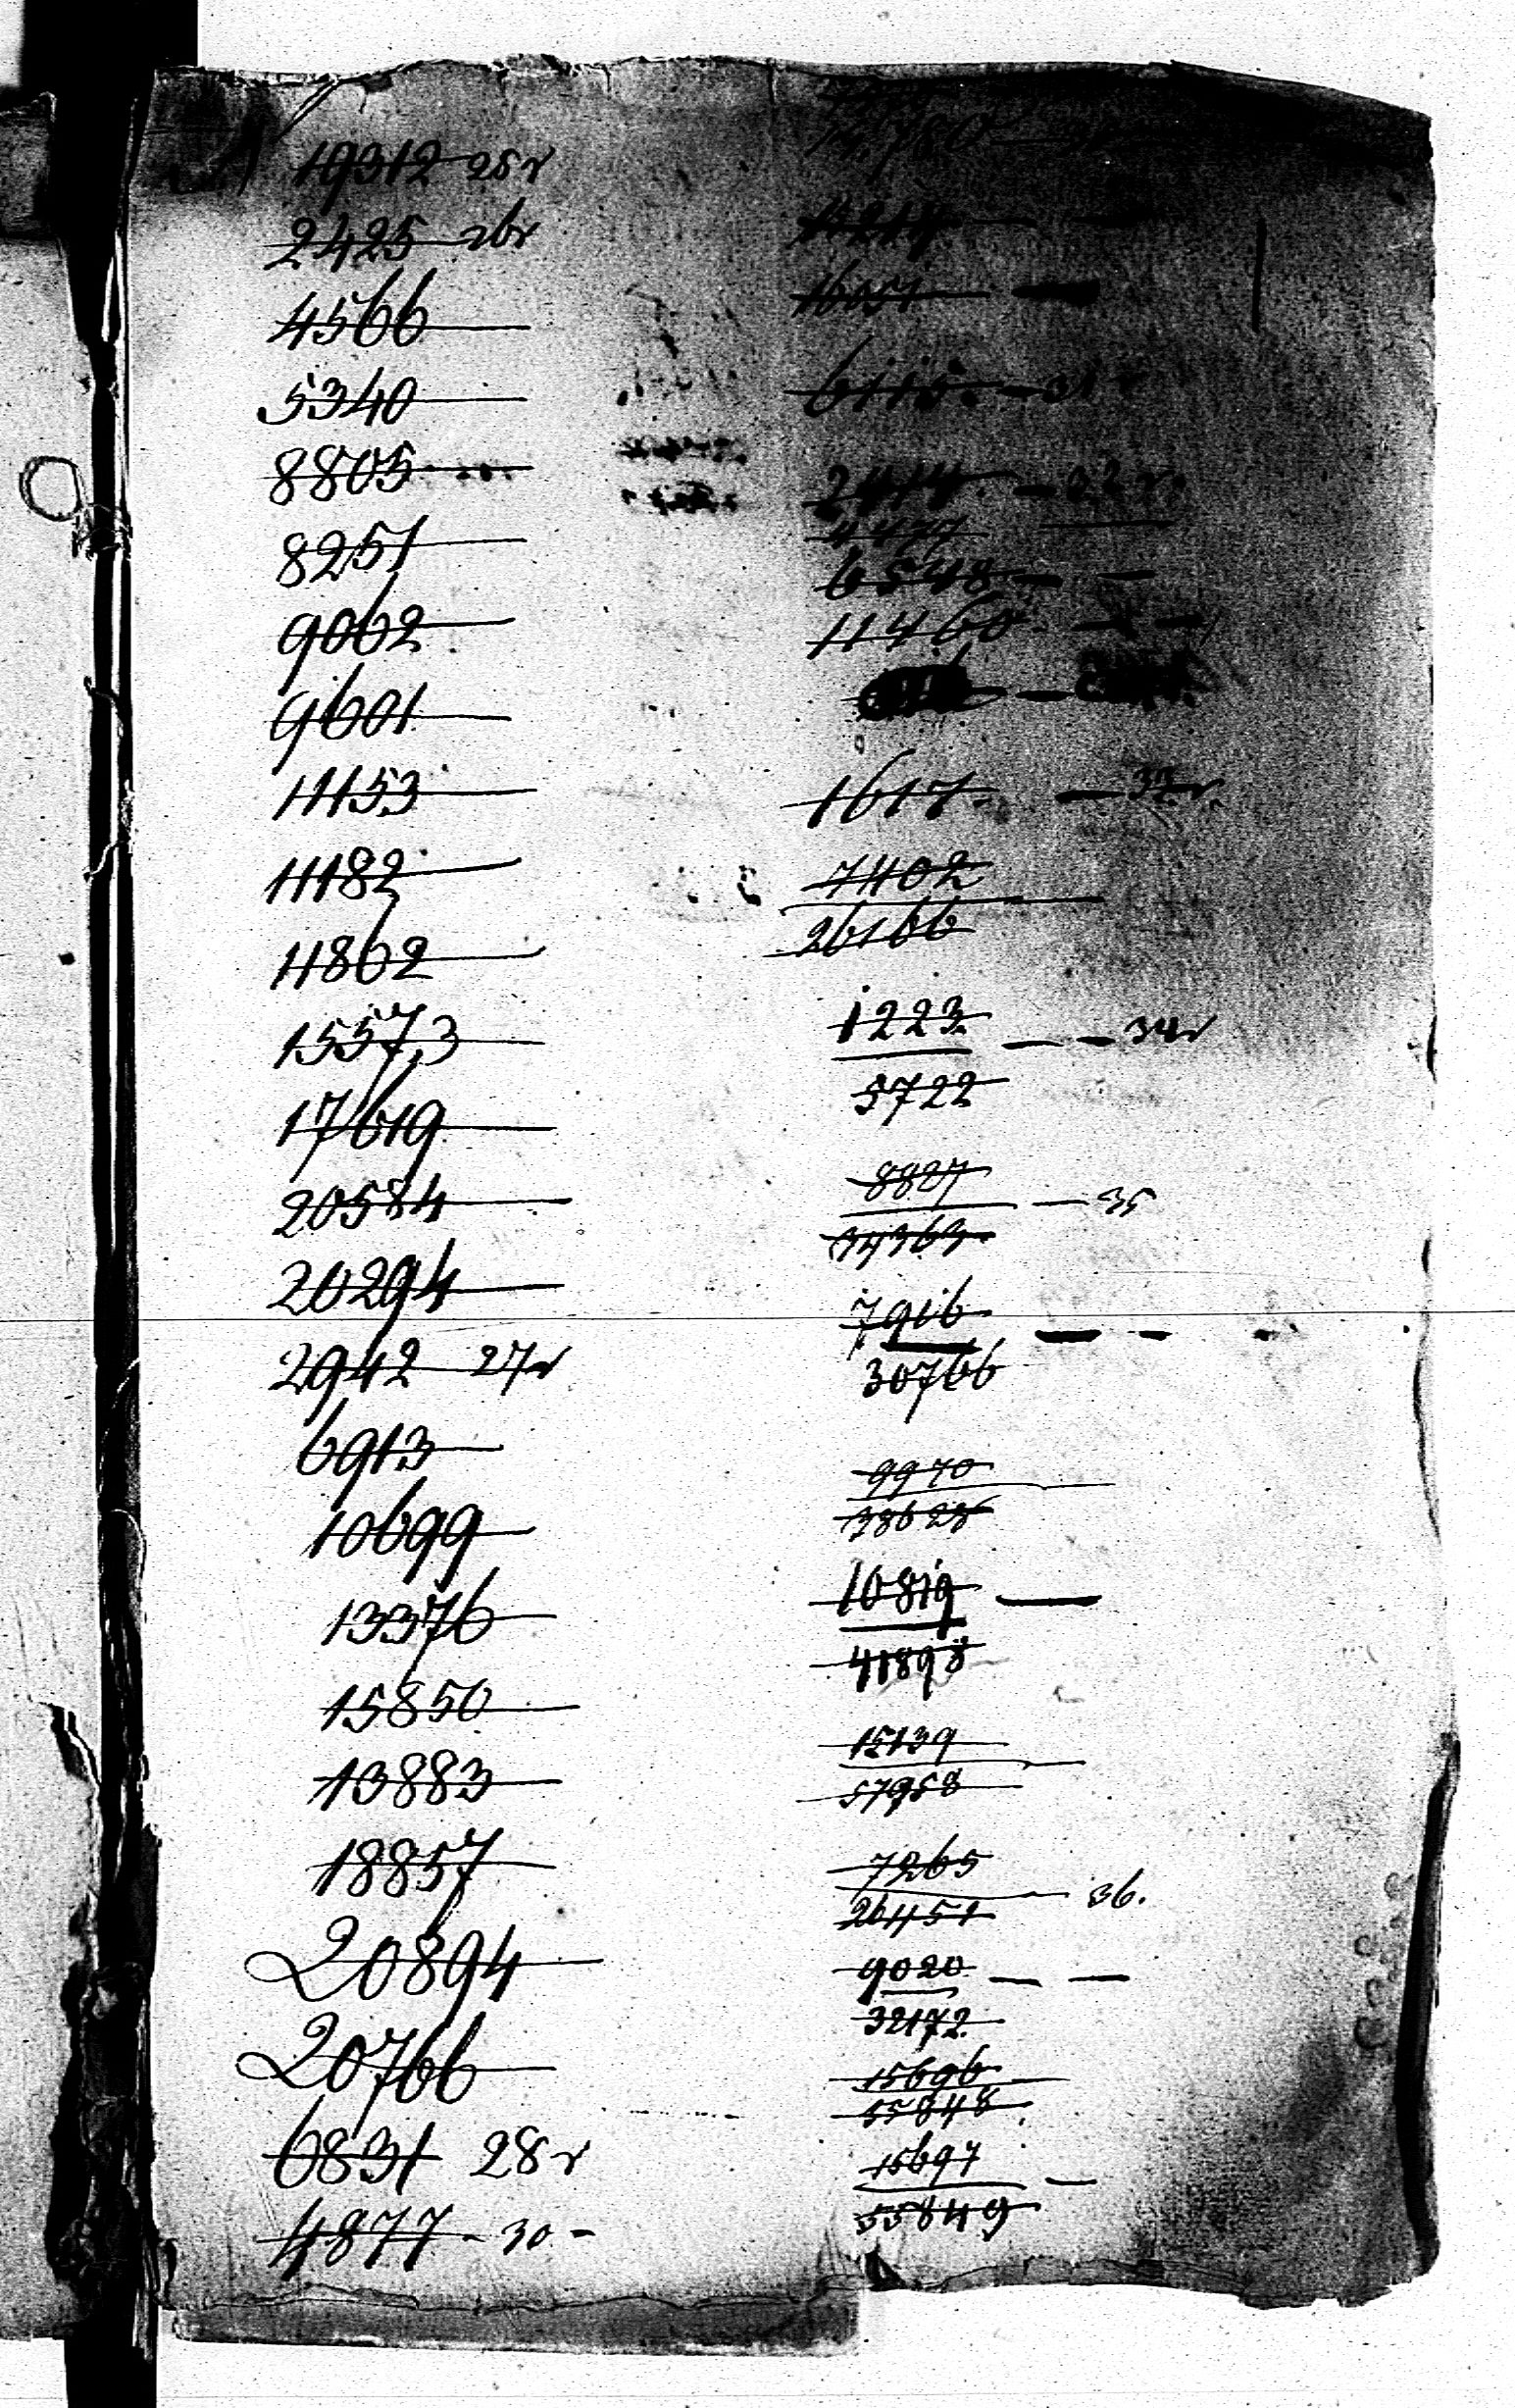 19312 25 г
2425 26 г
4566
5340
8805
8251
9062
9601
11153
11182
11862
15573
17619
20584
20294
2942 27 г
6913
10699
13376
15850
13883
18857
20894
20766
6831 28 г
4877 - 30 -
6115. - 31 г
2414. - 32 г.
4477
6548
11460.
1617. - 33 г.
7402
26166
1223. - 34 г
3722
8827
- 35
34363.
7916
30766
9970
38628
10819
41898
15139
57958
7265
36.
26451
9020
32172.
15696
55848
15697
55849